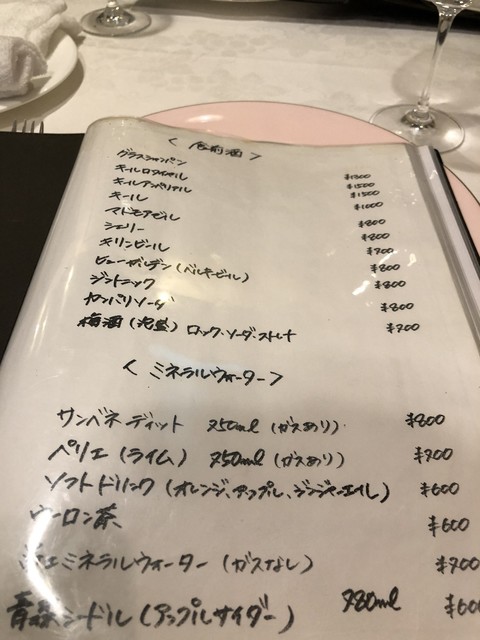 ＜食前酒＞
グラスシャンパン ¥1300
キールロワイヤル ¥1500
キールアンペリアル ¥1500
キール ¥1000
マドモアゼル ¥800
シェリー ¥800
キリンビール ¥700
ヒューガルデン(ベルギービール) ¥800
ジントニック ¥800
カンパリソーダ ¥800
梅酒(泡盛) ロック、ソーダ、ストレート ¥700
＜ミネラルウォーター＞
サンベネディット 750ml (ガスあり) ¥800
ペリエ(ライム) 750ml (ガスあり) ¥700
ソフトドリンク(オレンジ、アップル、ジンジャーエイル) ¥600
ウーロン茶 ¥600
ミネラルウォーター(ガスなし) ¥700
青森シードル(アップルサイダー) 780ml ¥600